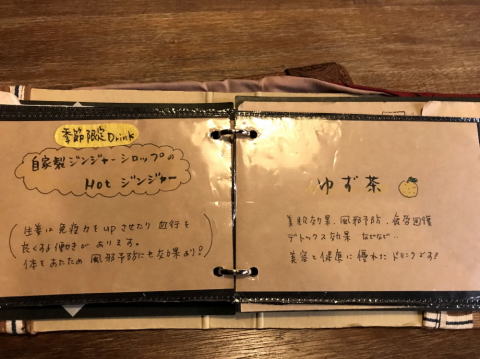 季節限定Drink
自家製ジンジャーシロップの
Hot ジンジャー
生姜は免疫力をupさせたり 血行を
良くする働きがあります。
体をあたため 風邪予防にも効果あり!
ゆず茶
美肌効果、風邪予防、疲労回復
デトックス効果 などなど..
美容と健康に優れたドリンクです!